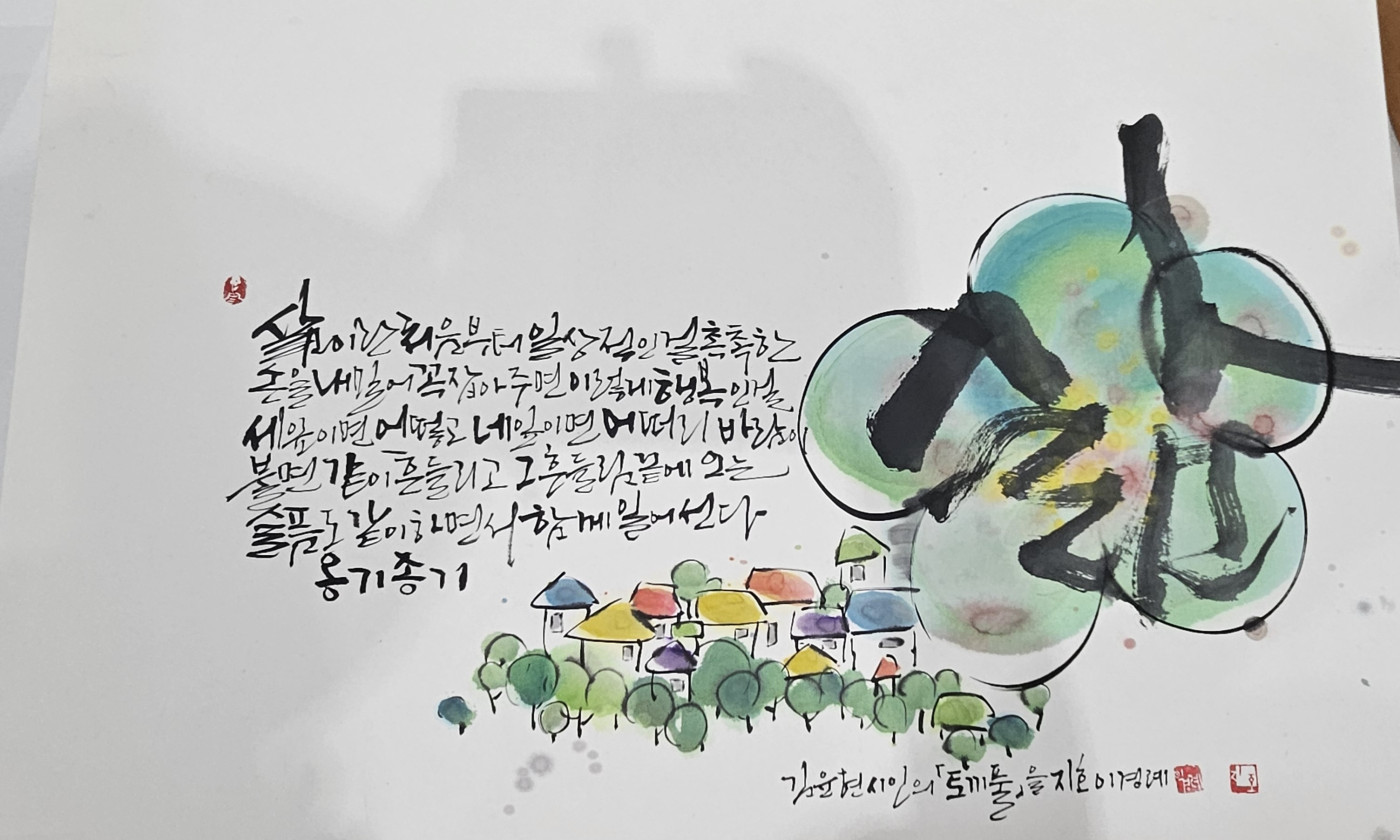 삶이란 처음부터 일상적인걸 촉촉한
손을 내밀어 꼭 잡아주면 이렇게 행복인걸
세잎이면 어떻고 네잎이면 어떠리 바람이
불면 같이 흔들리고 그 흔들림 끝에 오는
슬픔도 같이하면서 함께 일어선다
옹기종기
김윤현시인의 「토끼풀」을 지호 이경례